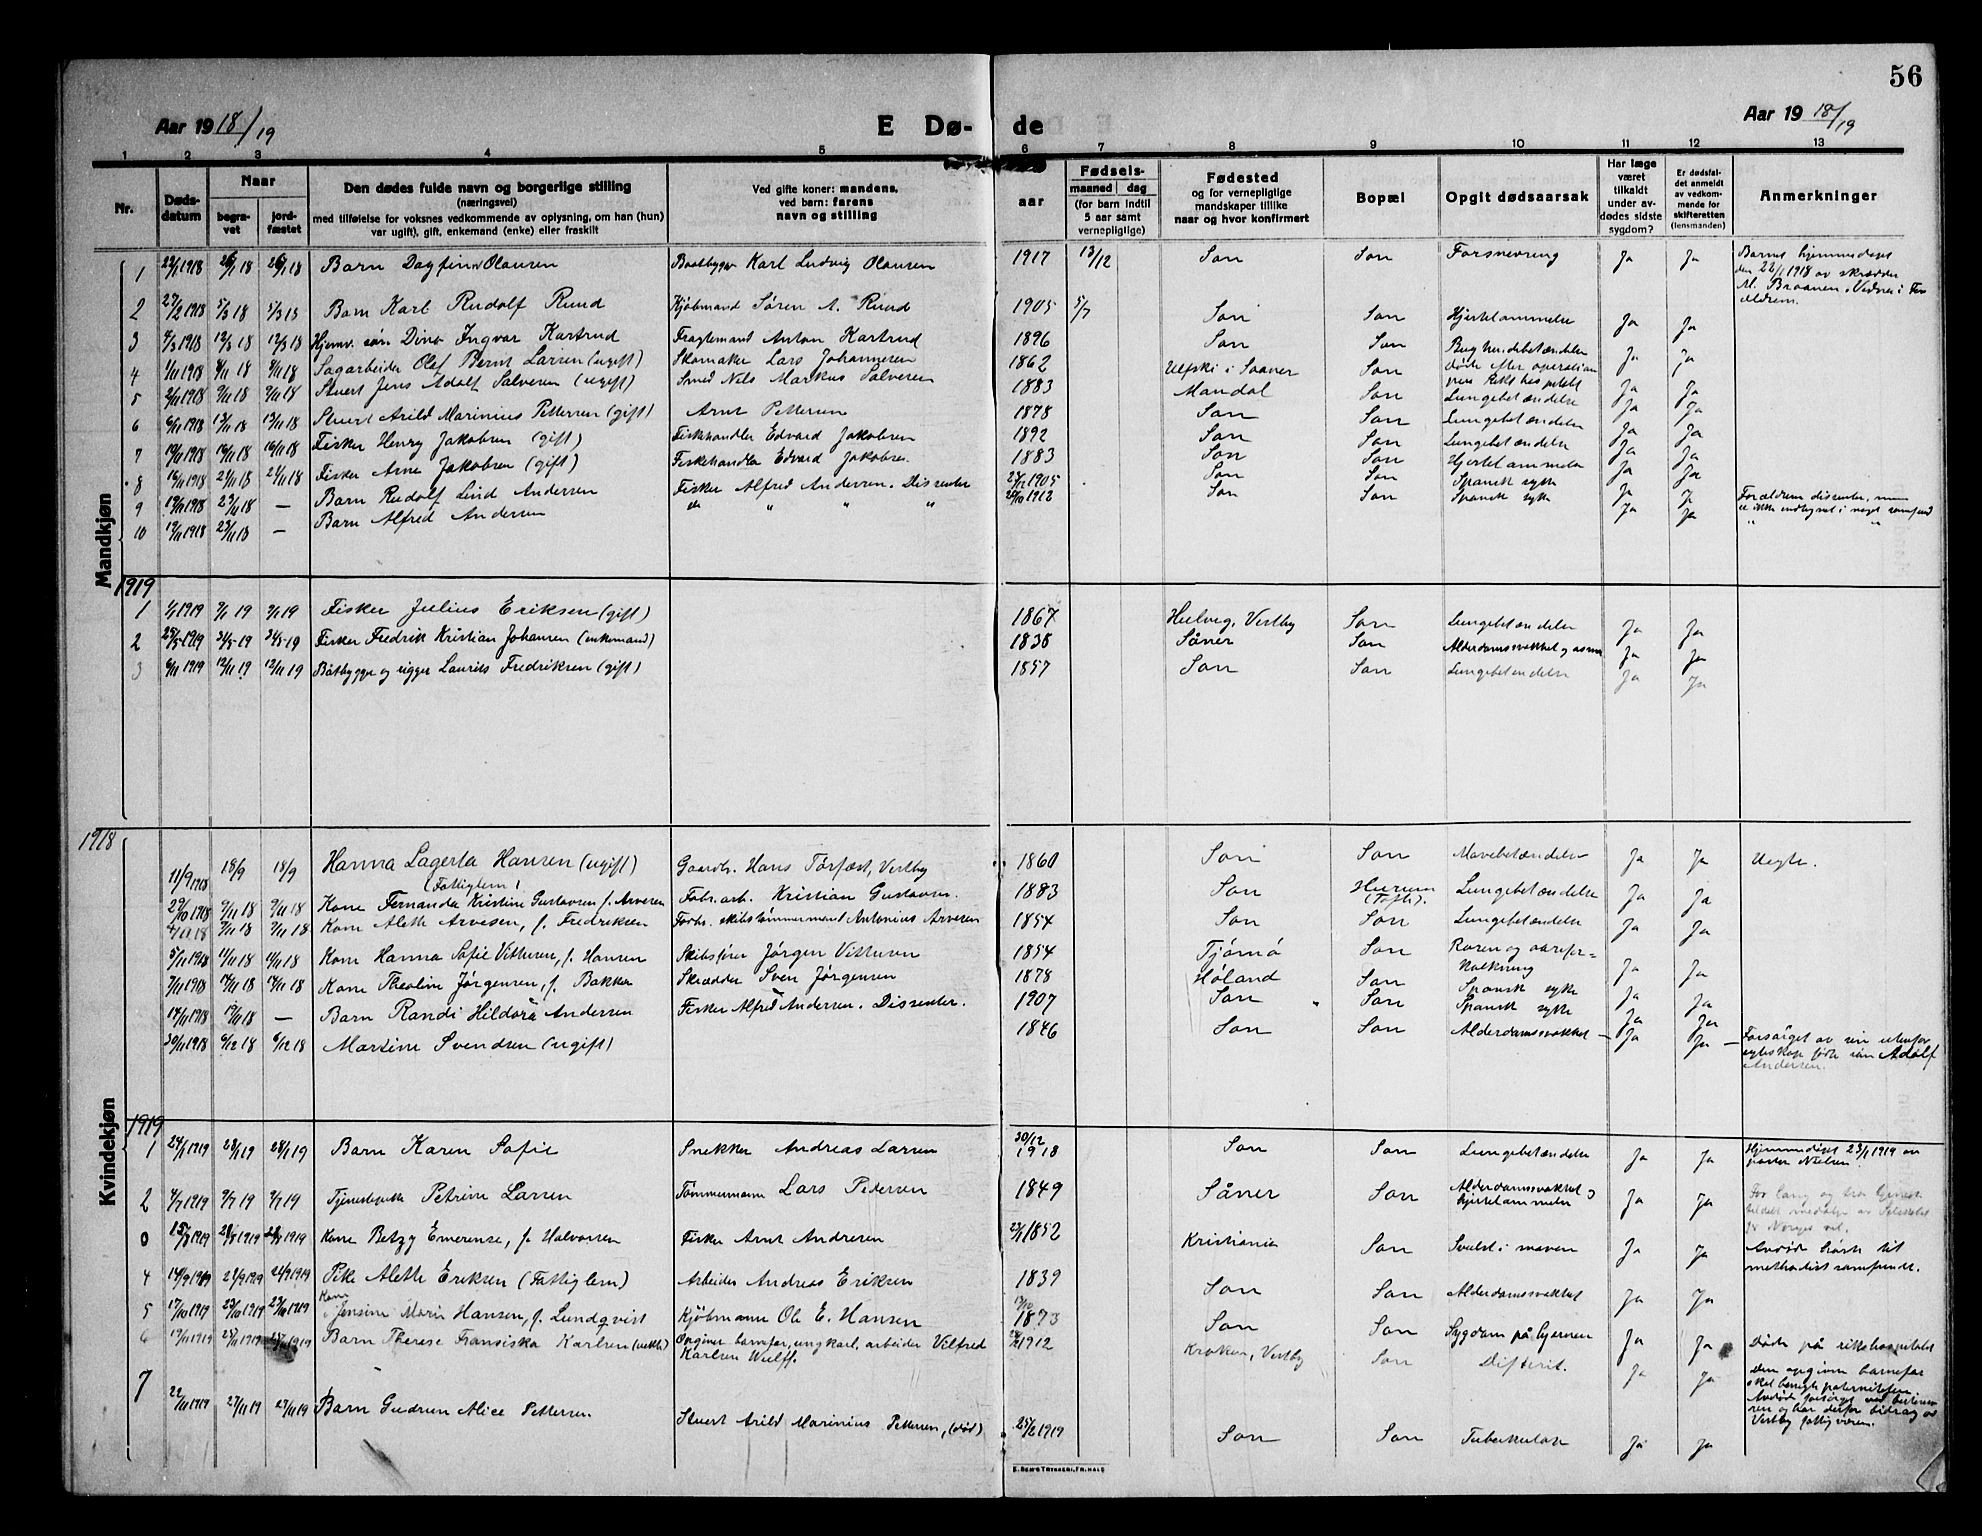 56
Aar 19 18/19
E Dø-
de
Aar 19 18/19
1 2 3 4 5 6 7 8 9 10 11 12 13
Nr.
Døds-
datum
Naar
begra-
vet
jord-
fæstet
Den dødes fulde navn og borgerlige stilling
(næringsvei)
med tilføielse for voksnes vedkommende av oplysning, om han (hun)
var ugift), gift, enkemand (enke) eller fraskilt
Ved gifte koner: mandens,
ved barn: farens
navn og stilling
aar
Fødsels-
maaned dag
(for barn indtil
5 aar samt
vernepligtige)
Fødested
og for vernepligtige
mandskaper tillike
naar og hvor konfirmert
Bopæl
Opgit dødsaarsak
Har læge
været
tilkaldt
under av-
dødes sidste
sygdom?
Er dødsfal-
det anmeldt
av vedkom-
mende for
skifteretten
(lensmanden)
Anmerkninger
Mandkjøn
1 Barn Dagfinn Olausen Baatbygger Karl Ludvig Olausen 1917 13/12 Son Son Forsnevring Ja Ja Barnet hjemmedøpt
den 22/1 1918 av skrædder
M. Braanen
2 27/2 1918 5/3 18 5/3 18 Barn Karl Rudolf Ruud Kjøbmand Søren A. Ruud 1905 5/7 Son Son Hjertelammelse Ja Ja
3 4/3 1918 12/3 18 12/3 18 Hjemv. søn Dino Ingvar Kartrud Fragtemand Anton Kartrud 1896 Son Son Bughindebetændelse Ja Ja
døde efter operation
paa Rikshospitalet
4 1/11 1918 9/11 18 9/11 18 Sagarbeider Olaf Bernt Larsen (ugift) Skomaker Lars Johannesen 1862 i Saaner Son Ja Ja
5 2/11 1918 9/11 18 9/11 18 Stuert Jens Adolf Salvesen (ugift) Smed Nils Markus Salvesen 1883 Mandal Son Lungebetændelse Ja Ja
6 6/11 1918 13/11 18 13/11 18 Stuert Arild Marinius Pettersen (gift) Arnt Pettersen 1878 Son Son Lungebetændelse Ja Ja
7 10/11 1918 16/11 18 16/11 18 Fisker Henry Jakobsen (gift) Fiskehandler Edvard Jakobsen 1892 Son Son Lungebetændelse Ja Ja
8 16/11 1918 21/11 18 21/11 18 Fisker Arne Jakobsen (gift) Fiskehandler Edvard Jakobsen 1883 Son Son Hjertelammelse Ja Ja
9 19/11 1918 23/11 18 — Barn Rudolf Lind Andersen Fisker Alfred Andersen. Dissenter 1905 Son Son Spansk syke Ja Ja Forældrene dissenter, men
er ikke indtegnet i noget samfund
10 19/11 1918 23/11 18 — Barn Alfred Andersen do " " " 1912 Son Son Spansk syke Ja Ja " "
1919
1 1/1 1919 9/1 19 9/1 19 Fisker Julius Eriksen (gift) 1867 Hulvig, Vestby Son Lungebetændelse Ja Ja
2 25/5 1919 31/5-19 31/5-19 Fisker Fredrik Kristian Johansen (enkemand) 1838 Såner Son Alderdomssvakhet og asma Ja Ja
3 6/11 1919 12/11 19 12/11 19 Båtbygger og rigger Laurits Fredriksen (gift) 1857 Son Son Lungebetændelse Ja Ja
1918
Kvindekjøn
11/9 1918 18/9 18/9 Hanna Lagerta Hansen (ugift) Gaardbr. Hans Torfæst, Vestby 1860 Son Son Mavebetændelse Ja Ja Uegte.
(Fattiglem)
29/10 1918 9/11 18 9/11 18 Kone Fernanda Kristine Gustavsen f. Arvesen Fabr. arb. Kristian Gustavsen. 1883 Son Hurum
(Tofte). Lungebetændelse Ja Ja
4/11 18 9/11 18 9/11 18 Kone Aleth Arvesen, f. Fredriksen Forh. skibstømmermand Antonius Arvesen 1854 Son Son Lungebetændelse Ja Ja
5/11 1918 11/11 18 11/11 18 Kone Hanna Sofie Vittersen, f. Hansen Skibsfører Jørgen Vittersen 1854 Tjømø Son Rosen og aarefor-
kalkning Ja Ja
7/11 1918 14/11 18 14/11 18 Kone Theoline Jørgensen, f. Bakker Skrædder Sven Jørgensen 1878 Høland Son Spansk syke Ja Ja
14/11 1918 19/11 18 — Barn Randi Hildora Andersen Fisker Alfred Andersen. Dissenter. 1907 Son " Son Spansk syke Ja Ja
30/11 1918 6/12 18 6/12 18 Martine Svendsen (ugift) 1846 Son Son Alderdomssvakhet — Ja Ja — Forsørget av sin utenfor
egteskap fødte søn Adolf
Andersen.
1919
1 24/1 1919 28/1 19 28/1 19 Barn Karen Sofie Snekker Andreas Larsen 30/12
1918 Son Son Lungebetændelse Ja Ja Hjemmedøpt 23/1 1919 av
pastor Nielsen.
2 4/7 1919 9/7 19 9/7 19 Petrine Larsen Tømmermann Lars Pedersen 1849 Såner Son Alderdomssvakhet og
hjertelammelse Ja Ja For lang og tro tjeneste
tildelt medalje av Selskabet
for Norges vel.
0 15/8 1919 20/8 1919 20/8 1919 Kone Betzy Emerense, f. Halvorsen Fisker Arnt Andresen 23/1 1852 Kristiania Son Svulst i maven Ja Ja Avdøde hørte til
methodist samfundet.
4 14/9 1919 21/9 1919 21/9 1919 Pike Alette Eriksen (Fattiglem) Arbeider Andreas Eriksen 1839 Son Son Alderdomssvakhet Ja Ja
5 17/10 1919 23/10 1919 23/10 1919 Kone
Jensine Marie Hansen, f. Lundqvist Kjøbmann Ole E. Hansen 1873 Son Son Sygdom på hjernen Ja Ja Døde på rikshospitalet
6 19/11 1919 1919 1919 Barn Therese Fransiska Karlsen (uekte) Opgiven barnefar, ungkarl, arbeider Vilfred
Karlsen Wulff. 1912 Kroken, Vestby Son Difterit. Ja Ja Den opgivne barnefar
skal benegte paterniteten.
7 22/11 1919 27/11 19 27/11 19 Barn Gudrun Alice Pettersen. Stuert Arild Marinius Pettersen, (død) 25/2 1919 Son Son Tuberkulose Ja Ja
Vestby fattigvæsen.
E. SEM'S TRYKKERI, FR.HALD